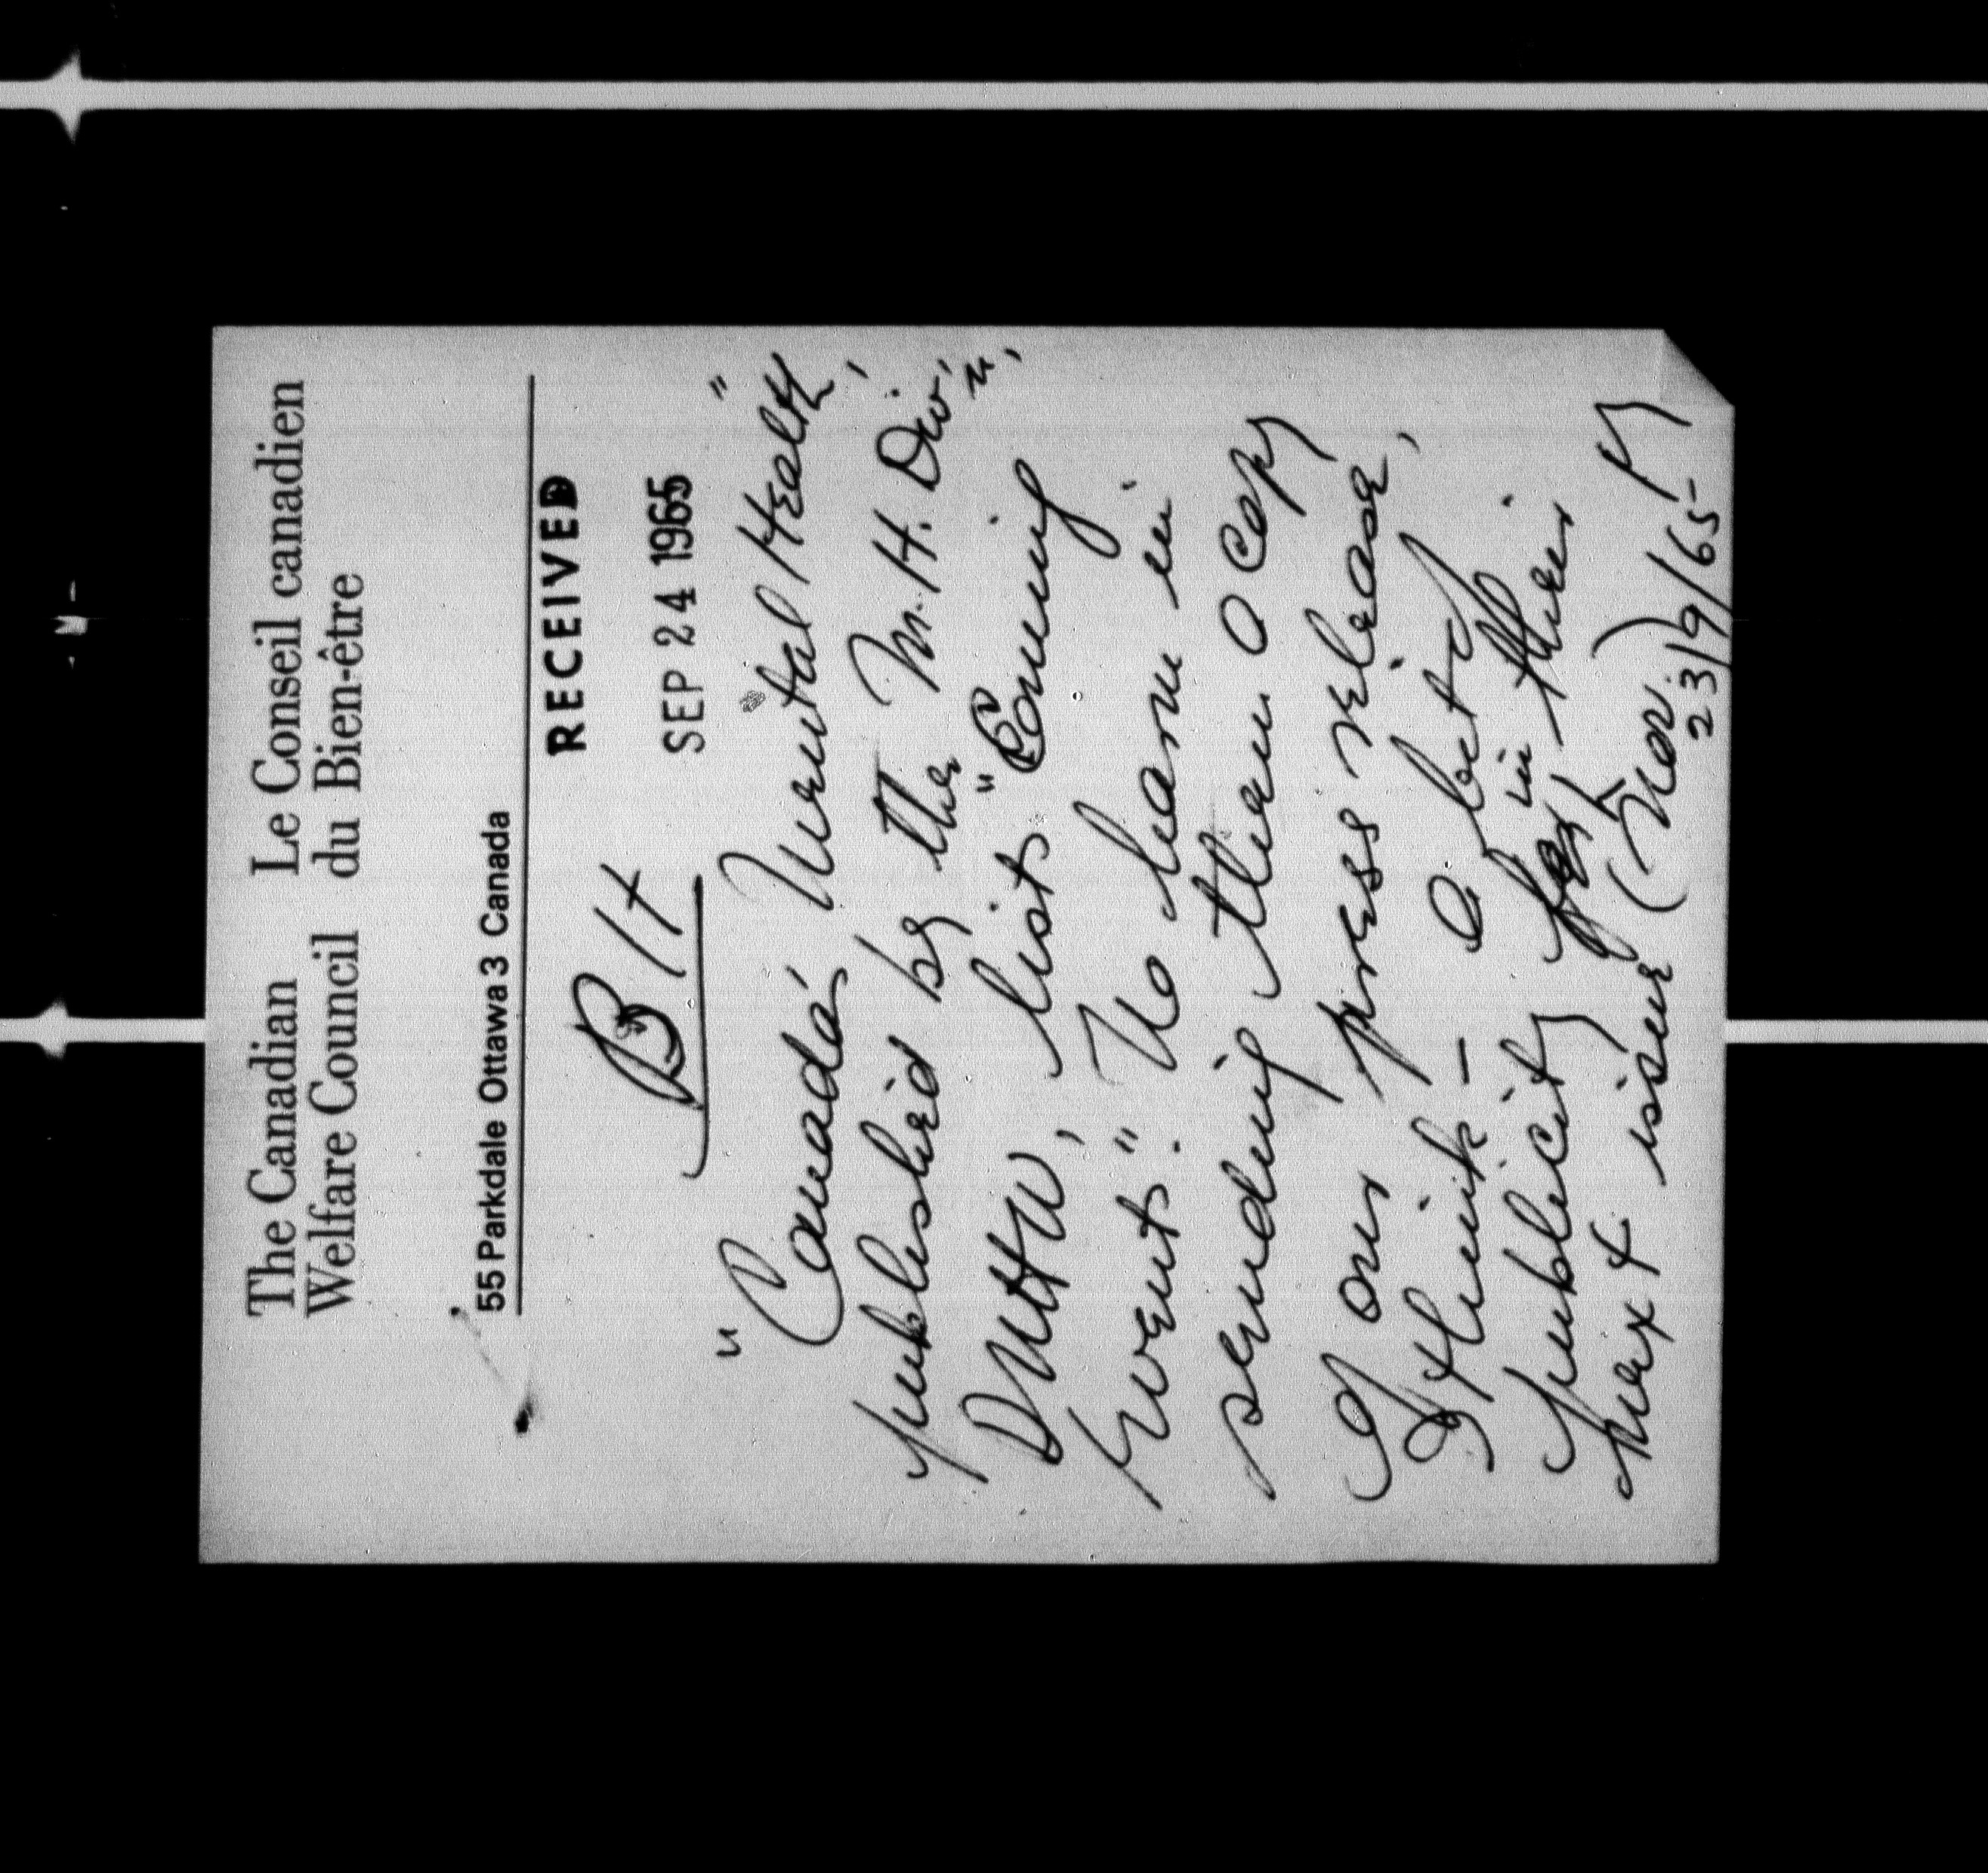 The Canadian Le Conseil canadien
Welfare Council du Bien-être
55 Parkdale Ottawa 3 Canada
RECEIVED
SEP 24 1965
BH
"Canada's Mental Health",
published by the M.H. Div.,
DNHW, lists "Coming
Events". No harm in
sending them a copy
of our press release,
I think - a bit of
publicity for in their
next issue (Nov.)
23/9/65